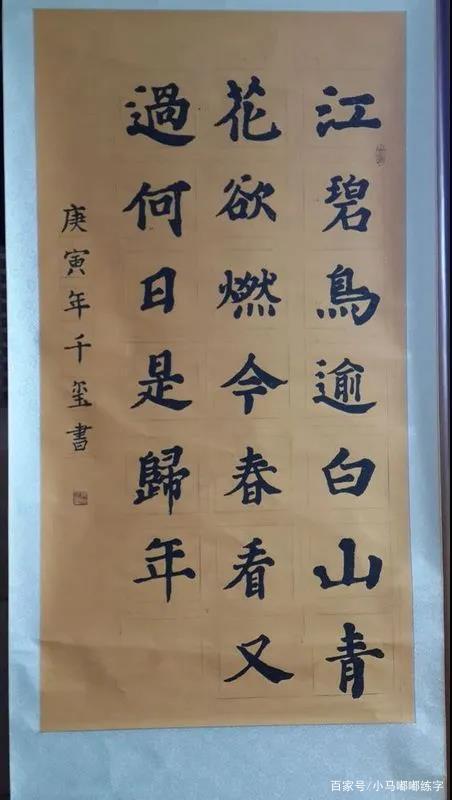 江碧鳥逾白山青
花欲燃今春看又
過何日是歸年
庚寅年千玺書
百家号/小马嘟嘟练字